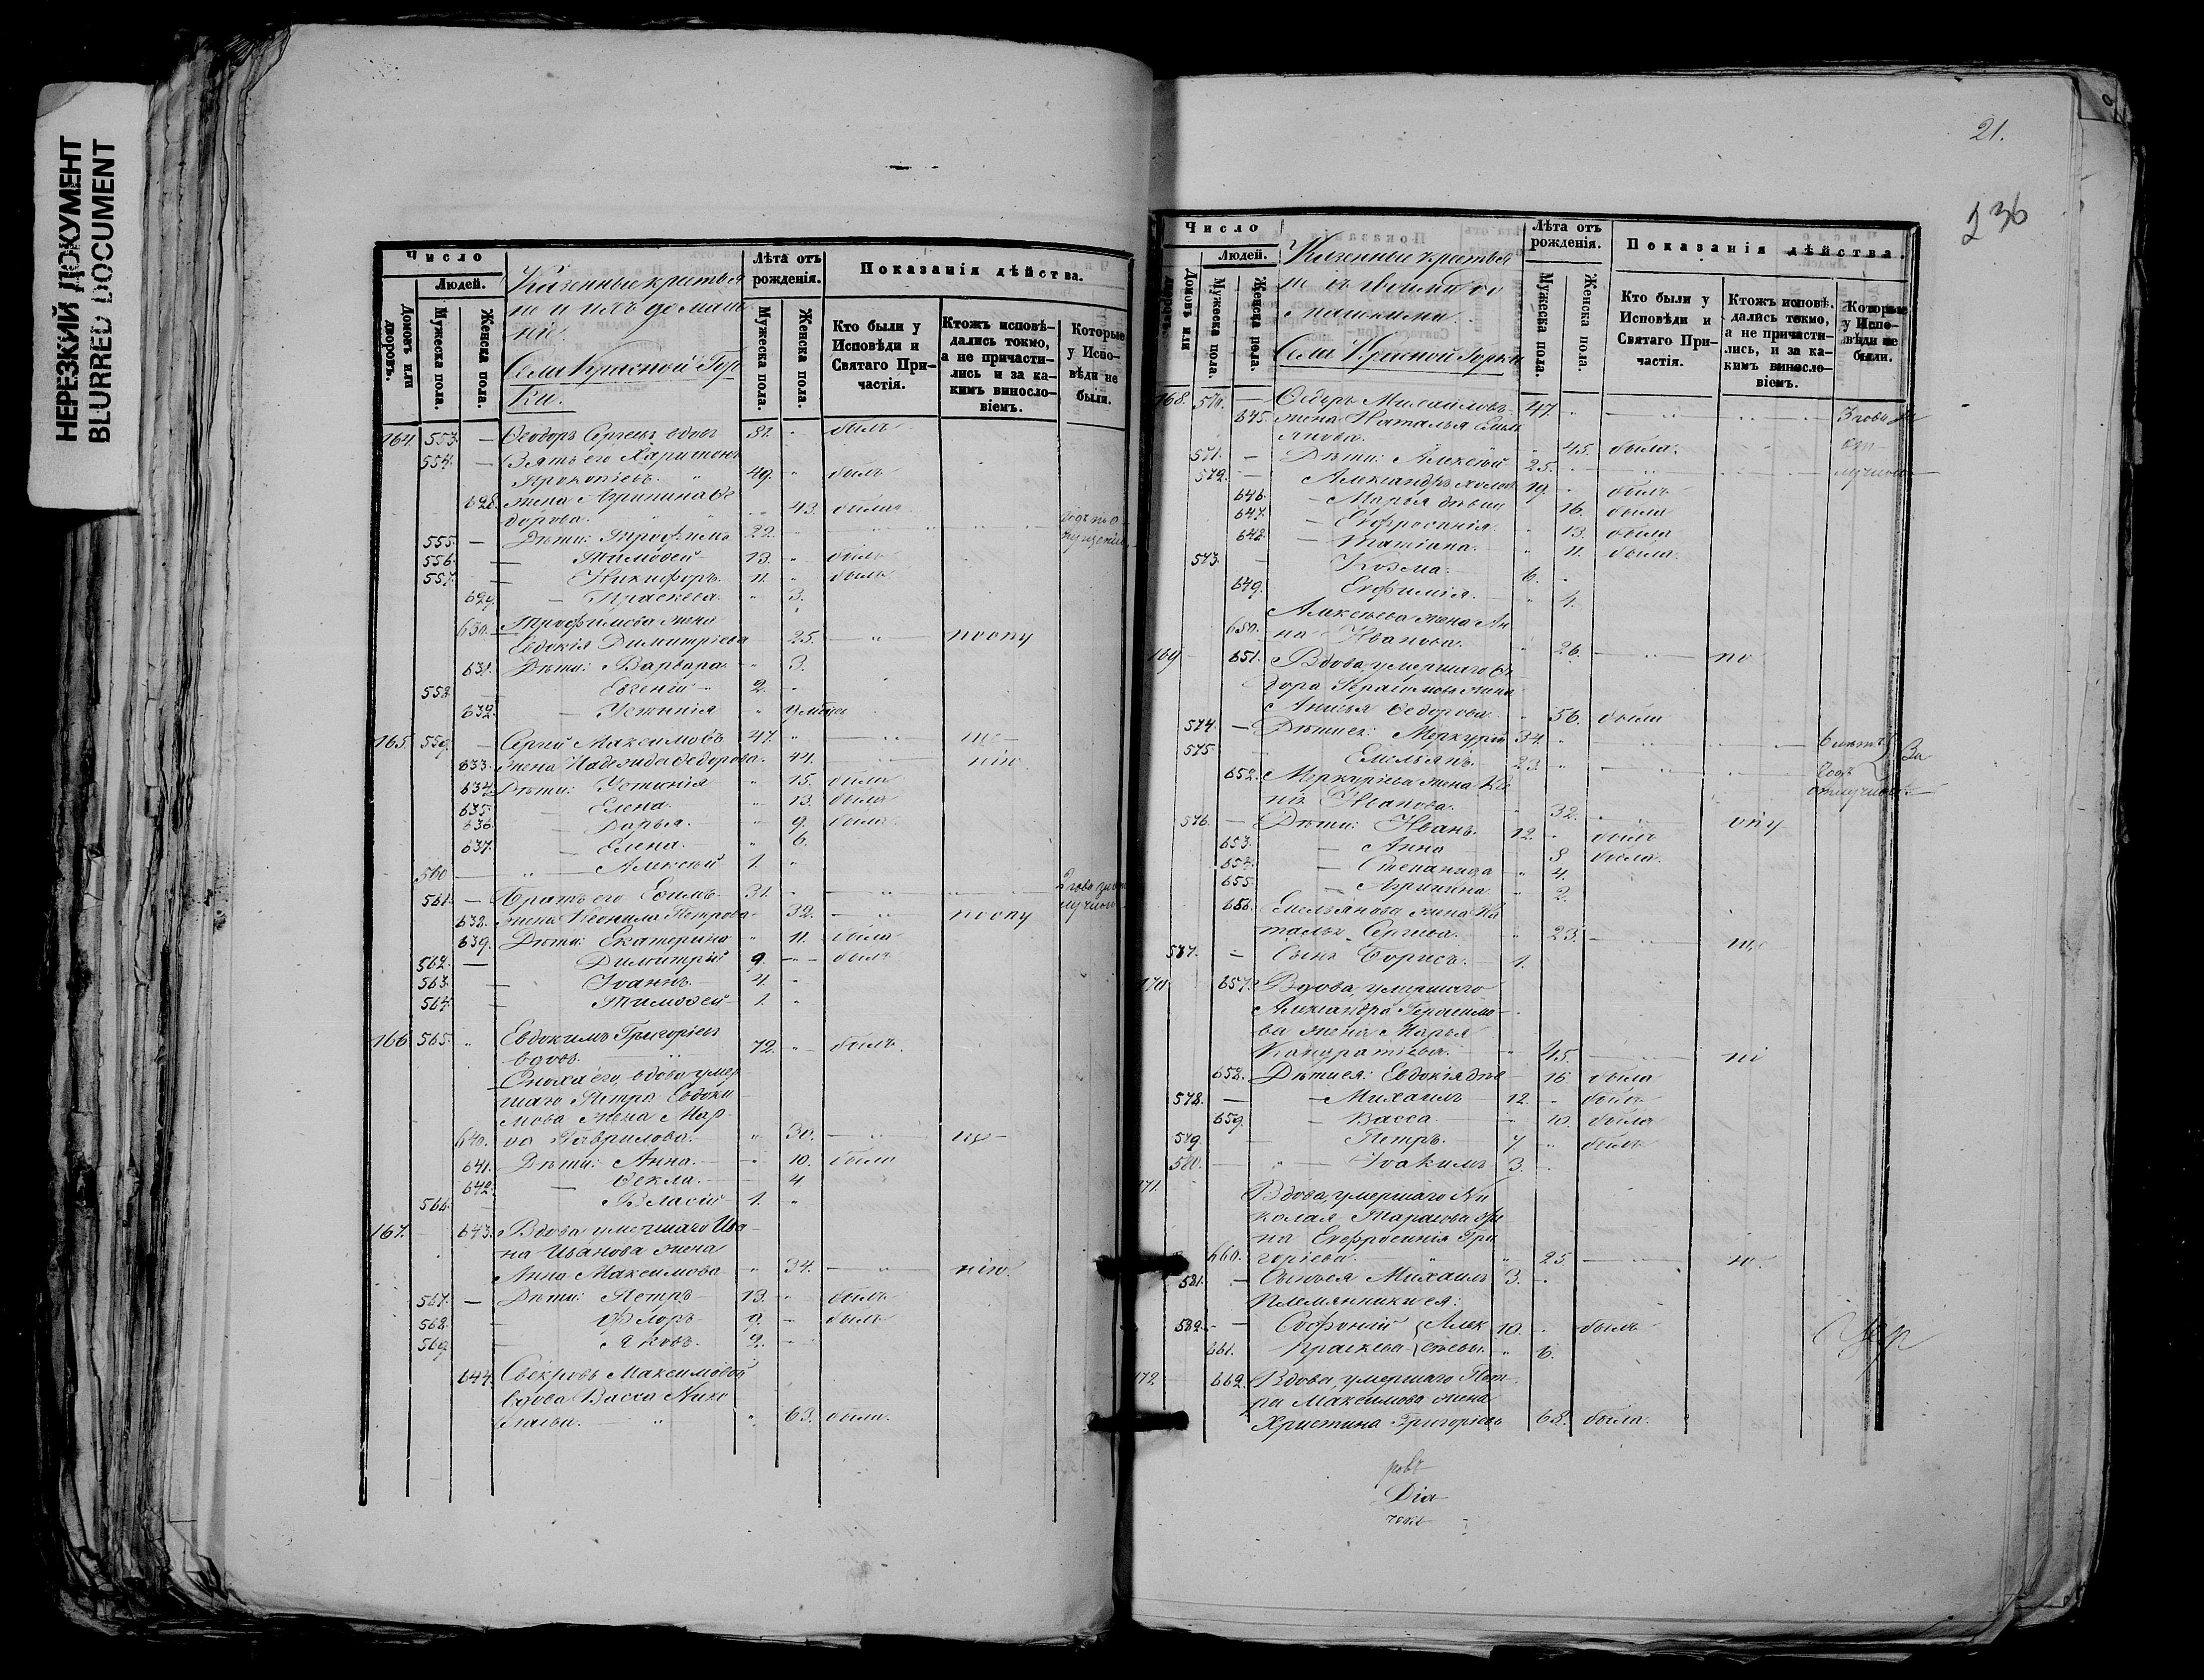 НЕРЕЗКИЙ ДОКУМЕНТ
BLURRED DOCUMENT
Число
Людей.
Домовъ или дворовъ.
Мужеска пола.
Женска пола.
Казенные крестья
не и ихъ домаш
ніе.
Села Красной Гор
ки.
Лѣта отъ рожденія.
Мужеска пола.
Женска пола.
Показанія дѣйства.
Кто были у Исповѣди и Святаго Причастія.
Ктожъ исповѣдались токмо, а не причастились и за какимъ винословіемъ.
Которые у Исповѣди не были.
164. 553. — Ѳеодоръ Сергеевъ вдовъ 81. " былъ
554. — Зять его Харитонъ
Прокопіевъ. 49. " былъ
628. жена Агрипина Ѳе
дорова. " 43. была
555. — Дѣти: Трофимъ 22. "
556. — Тимоѳей 13. " былъ
557. — Никифоръ. 11. " былъ
629. — Праскева. " 3.
630. Трофимова жена
Евдокія Димитріева 25. — " —
631. Дѣти: Варвара — " 3.
558. — Евгеній 2. "
632. — Устинія "
165. 559. — Сергій Максимовъ 47. "
633. жена Надежда Ѳедорова. 44.
634. Дѣти: Устинія " 15. была
635. — Елена. " 13. была
636. — Дарья. " 9. была
637. — Елена. " 6.
560 — " — Алексѣй 1. "
561. — Братъ его Ефимъ 31. "
638. жена Неонила Петрова 32. — "
639. Дѣти: Екатерина " 11. была
562. — Димитрій 9. " былъ
563. — Іоаннъ 4. "
564. — Тимоѳей 1. "
166 565. " Евдокимъ Григоріевъ
вдовъ. 72. " былъ.
Сноха его, вдова умер
шаго Петра Евдоки
мова жена Мар
640. ѳа Гаврилова. " 30. — "
641. Дѣти: Анна. " 10. была
642. — Ѳекла. 4
566. — Власій 1. "
167. 643. Вдова умершаго Ива
на Иванова жена
Анна Максимова " 34. — " —
567. — Дѣти: Петръ 13. " былъ
568. — Флоръ 9. — былъ
569. — Яковъ. 2.
644. Свекровь Максимовой
вдова Васса Нико
лаева. " " 63. была.
21.
236
Число
Людей.
Домовъ или дворовъ.
Мужеска пола.
Женска пола.
Казенные крестья
не
Села Красной Горки
Лѣта отъ рожденія.
Мужеска пола.
Женска пола.
Показанія дѣйства.
Кто были у Исповѣди и Святаго Причастія.
Ктожъ исповѣдались токмо, а не причастились, и за какимъ винословіемъ.
Которые у Исповѣди не были.
168. 570. — Ѳедоръ Михайловъ 47. "
645. жена Наталья Емел
янова. " 45. была.
571. — Дѣти: Алексѣй 25. "
572. — Александръ 19. " былъ
646. — Марья дѣвица 16. была
647. — Евфросинія. " 13. была
648. — Татіана. " 11. была.
573. — Козма. 6. "
649. Евфимія. " 4.
Алексѣева жена Ан
650. на Иванова. " 26. — " —
169 651. Вдова, умершаго Ѳе
дора Герасимова жена
Анисья Ѳедорова. " 56. была
574. — Дѣти ея: Меркурій 34. "
575. Емельянъ. 23. "
652. Меркуріева жена Ксе
нія Иванова. " 32. "
576. — Дѣти: Иванъ. 12. " былъ
653. — Анна " 8. была.
654. — Степанида " 4.
655. — Агрипина. " 2.
656. Емельянова жена На
талья Сергѣева. " 23. — "
587. — Сынъ Борисъ. 1.
170 657. Вдова, умершаго
Александра Герасимо
ва жена Марья
Кондратіева. " 45. —
658. Дѣти ея: Евдокія 16. была
578. — Михаилъ 12. " былъ
659. — Васса " 10. была
579. Петръ. 7 " былъ
580. — " — Іоакимъ 3. "
171. Вдова, умершаго Ни
колая Тарасова же
на Евфросинія Гри
660. горіева. " " 25. —
581. — Сынъ ея Михаилъ 3. "
Племянники ея:
582. — Софоній } Алек 10. " былъ
661. Праскева } сѣевы. " 6.
172 662. Вдова, умершаго Пет
ра Максимова жена
Христина Григоріева 68. была.
Діа